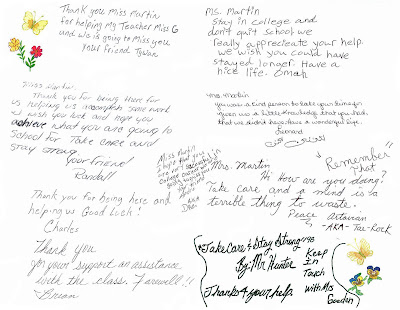 Thank you Miss Martin
for helping my Teacher Miss G
and we is going to Miss you
your friend Tywan
Ms. Martin
Stay in college and
don't quit school we
really apprecreate your help.
we wish you could have
stayed longer. Have a
nice life. Omah
Miss Martin.
Thank you for being there for
us helping us accomplish some work
wish you luck and hope you
achieve what you are going to
School for Take care and
stay strong
your friend
Randall
Mrs. Martin
you was a kind person to take your time
given us a little Knowledge that you had,
that we didnt have. Have a wonderful life.
Miss Martin
AKA
Mrs. Martin
"Remember
That"
Hi How are you doing?
Take care and a mind is a
terrible thing to waste.
Peace Artavian
-AKA- Tae-Rock
Thank you for being here and
helping us Good Luck!
Charles
Thank you
for your support an assistance
with the class, Farewell!!
Brian
Take Care & Stay Strong
By: Mr Hunter
Thanks 4 your help.
Keep
In
Touch
with Ms